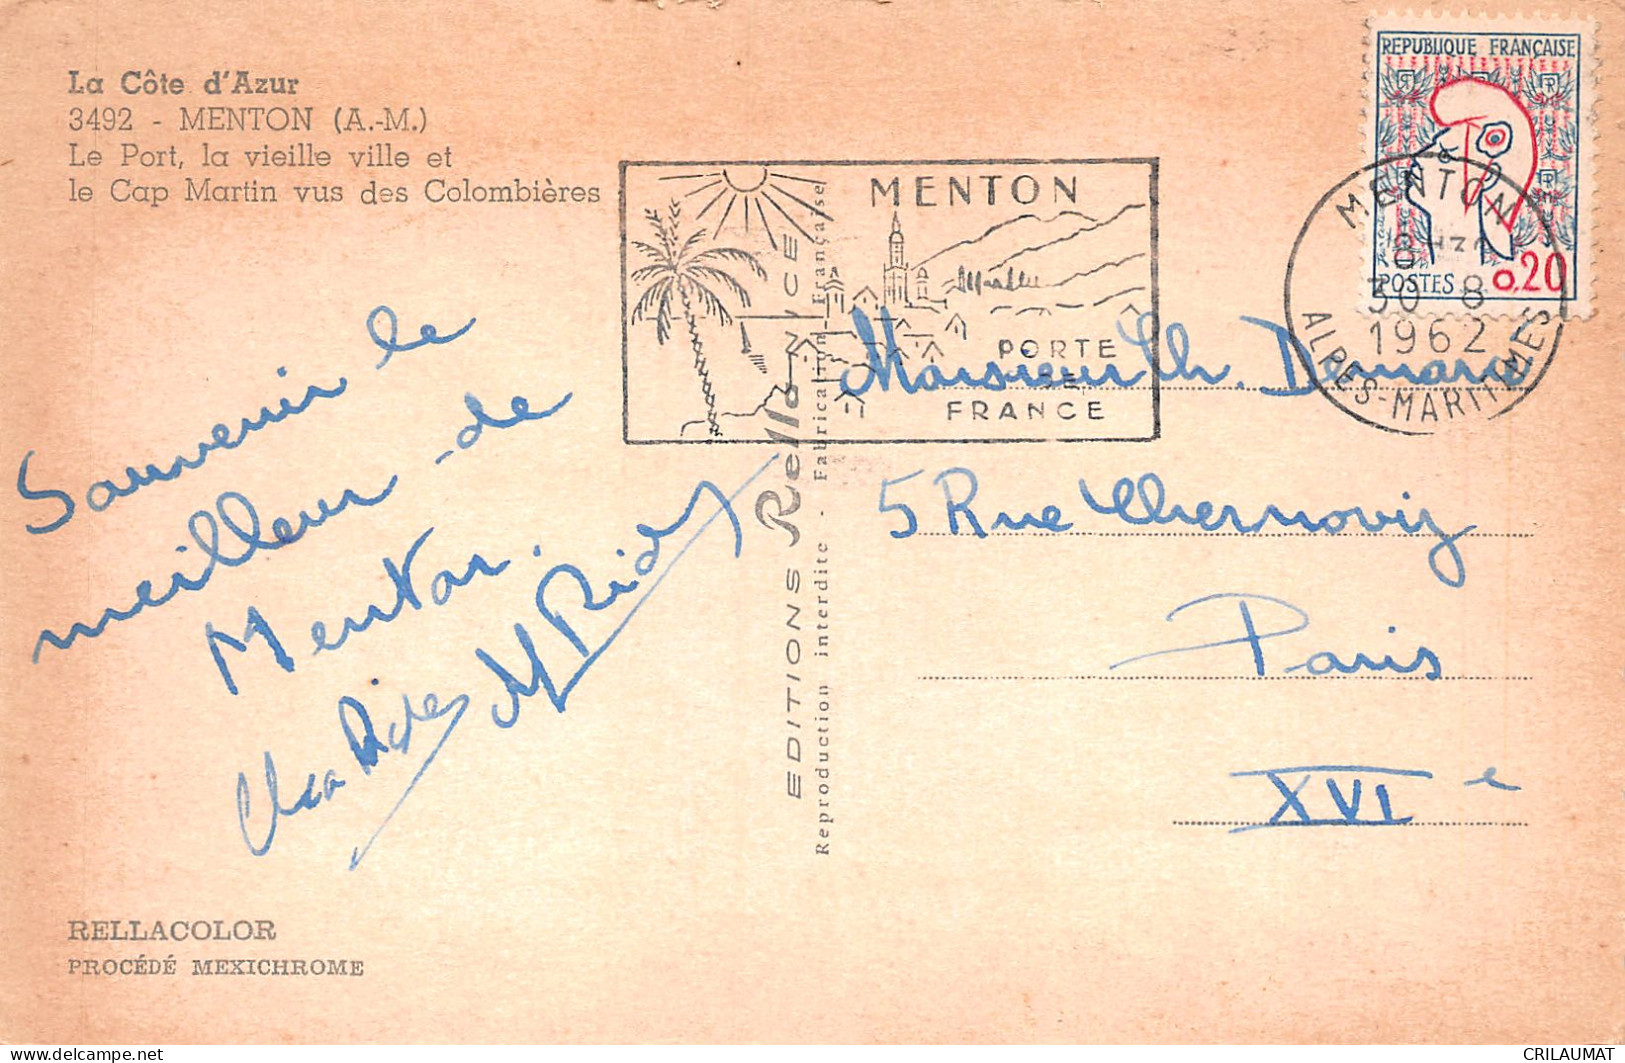 La Côte d'Azur
3492 - MENTON (A.-M.)
Le Port, la vieille ville et
le Cap Martin vus des Colombières
REPUBLIQUE FRANÇAISE
POSTES 0,20
MENTON
30 - 8
1962
ALPES-MARITIMES
MENTON
PORTE
DE
FRANCE
Souvenir le
meilleur de
Menton.
Monsieur Ch.
5 Rue Chernoviz
Paris
XVIe
EDITIONS Rella NICE
Reproduction interdite - Fabrication Française
RELLACOLOR
PROCÉDÉ MEXICHROME
CRILAUMAT